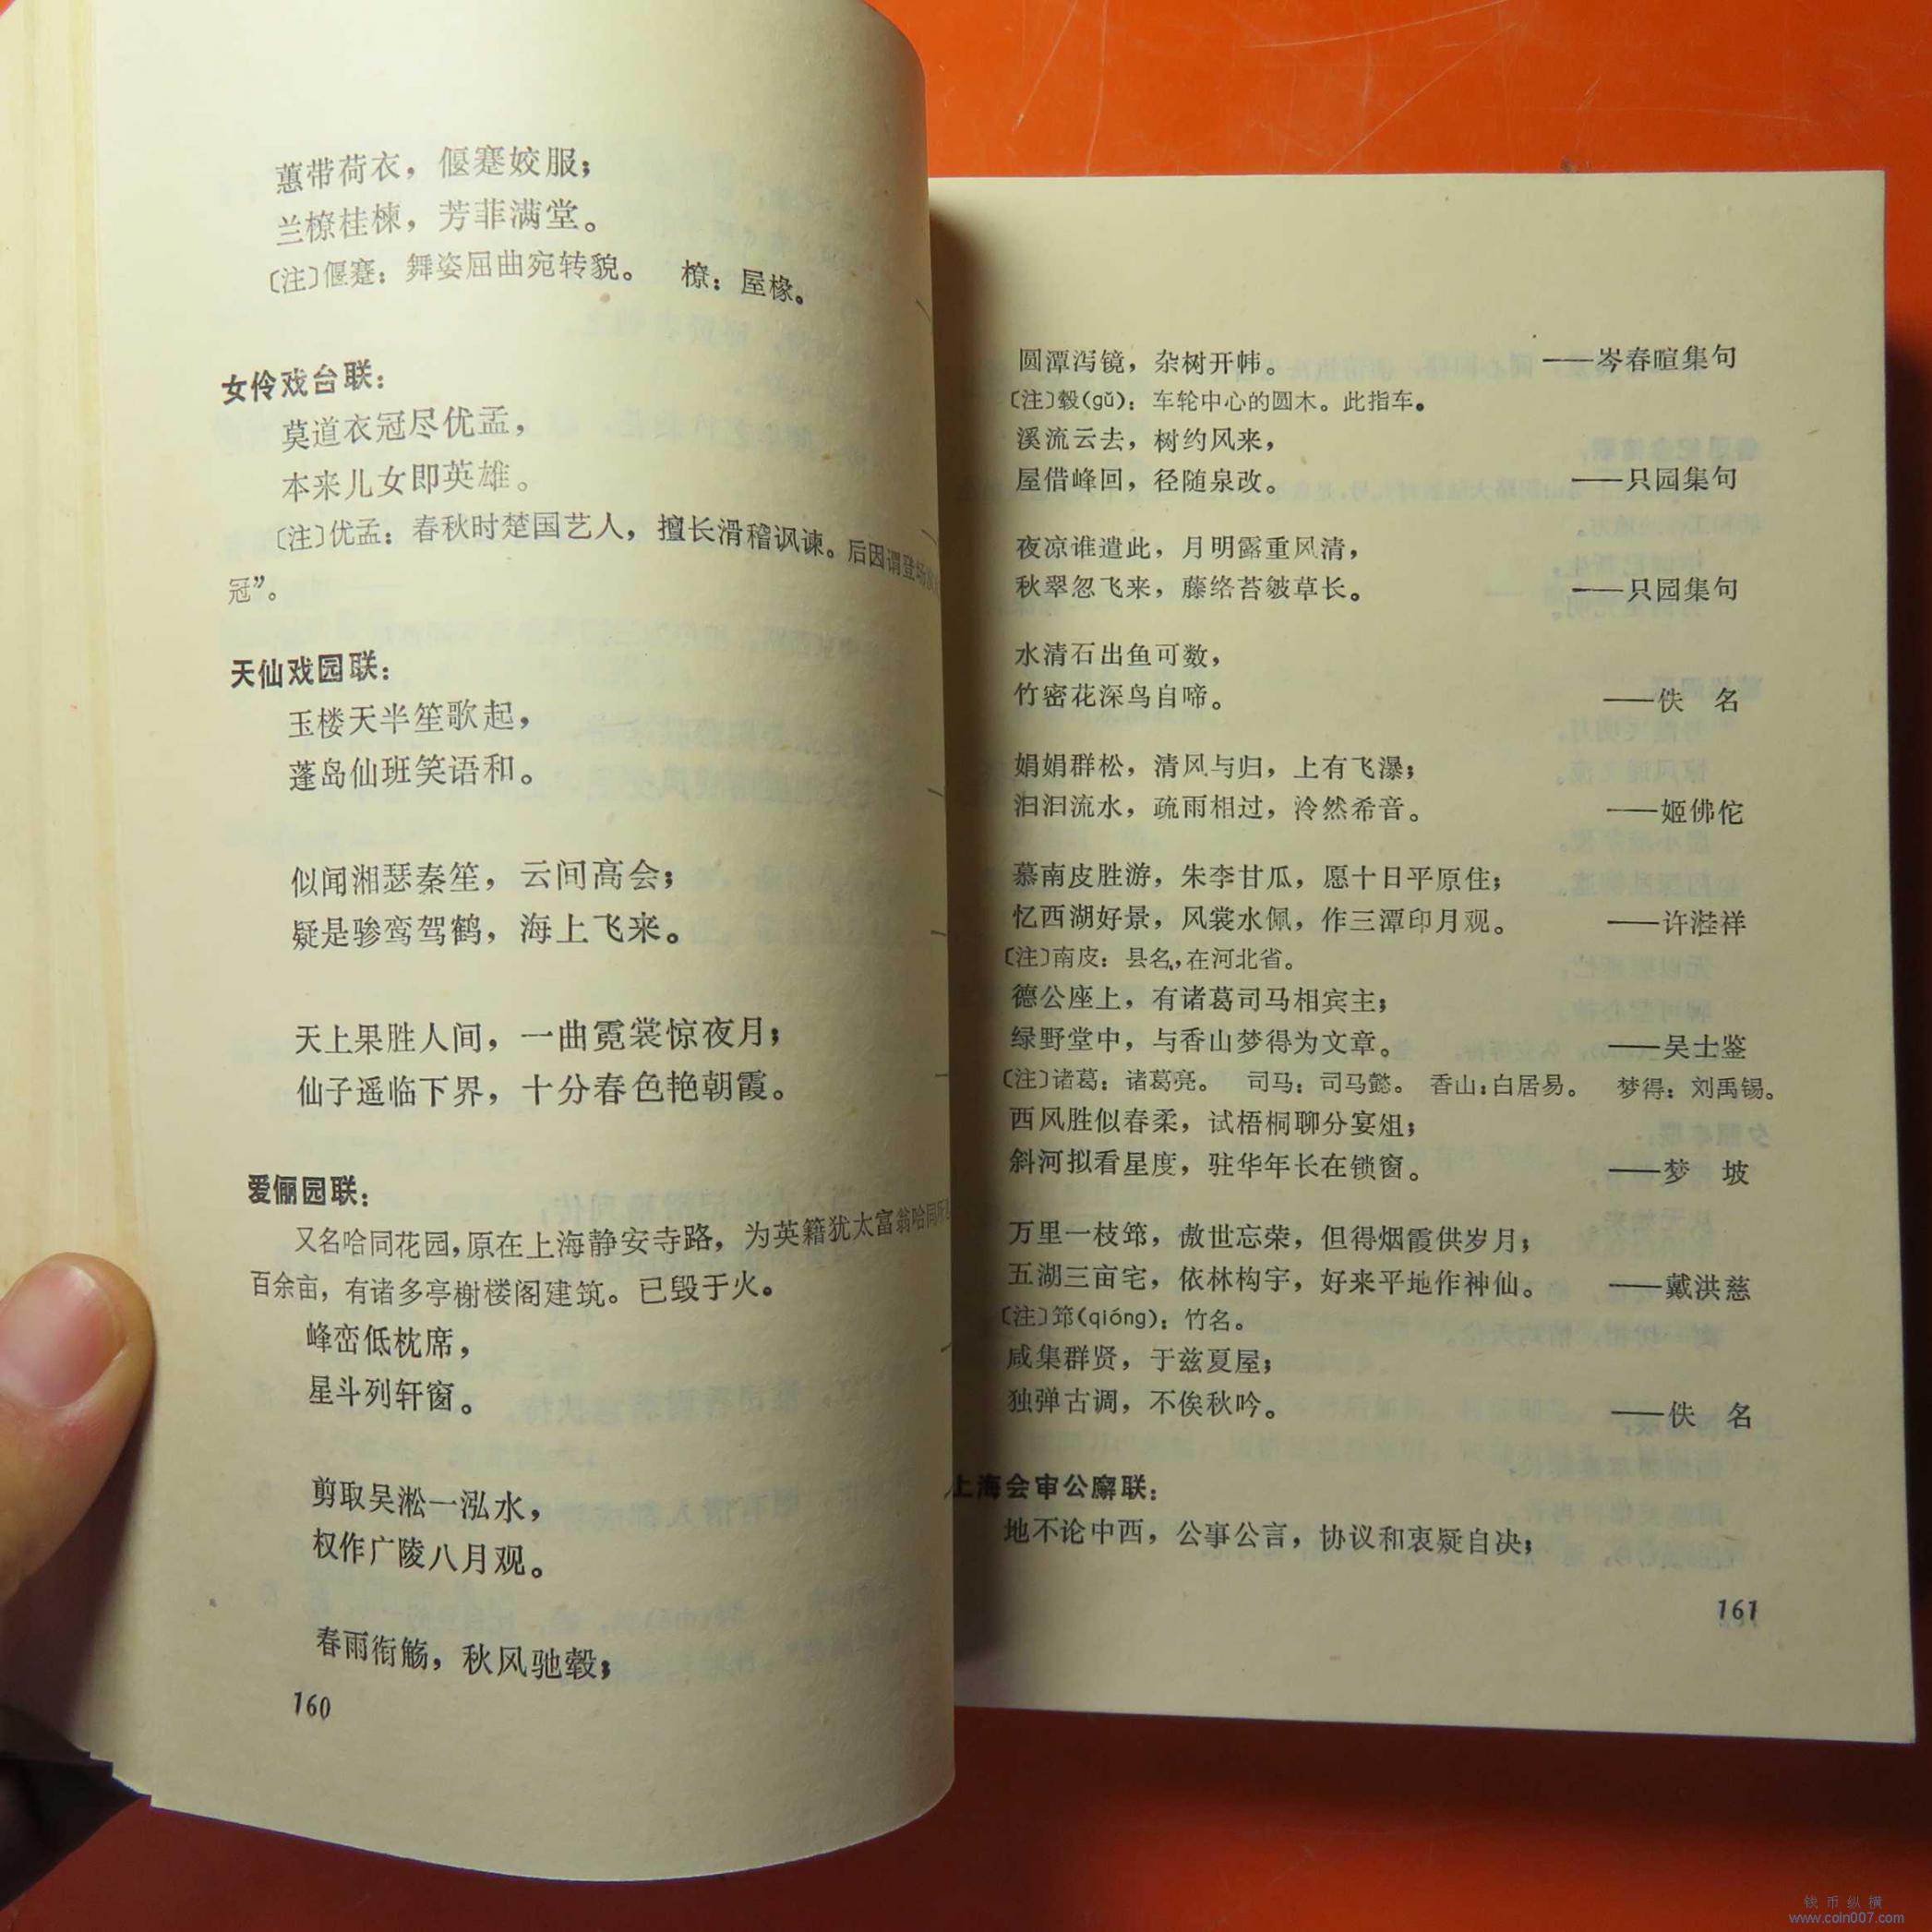 蕙带荷衣，偃蹇姣服；
兰橑桂楝，芳菲满堂。
〔注〕偃蹇：舞姿屈曲宛转貌。　橑：屋椽。
女伶戏台联：
莫道衣冠尽优孟，
本来儿女即英雄。
〔注〕优孟：春秋时楚国艺人，擅长滑稽讽谏。后因谓登场
冠”。
天仙戏园联：
玉楼天半笙歌起，
蓬岛仙班笑语和。
似闻湘瑟秦笙，云间高会；
疑是骖鸾驾鹤，海上飞来。
天上果胜人间，一曲霓裳惊夜月；
仙子遥临下界，十分春色艳朝霞。
爱俪园联：
又名哈同花园，原在上海静安寺路，为英籍犹太富翁哈同所
百余亩，有诸多亭榭楼阁建筑。已毁于火。
峰峦低枕席，
星斗列轩窗。
剪取吴淞一泓水，
权作广陵八月观。
春雨衔觞，秋风驰毂；
160
圆潭泻镜，杂树开帏。　——岑春暄集句
〔注〕毂(gǔ)：车轮中心的圆木。此指车。
溪流云去，树约风来，
屋借峰回，径随泉改。　——只园集句
夜凉谁遣此，月明露重风清，
秋翠忽飞来，藤络苔皴草长。　——只园集句
水清石出鱼可数，
竹密花深鸟自啼。　——佚　名
娟娟群松，清风与归，上有飞瀑；
汩汩流水，疏雨相过，泠然希音。　——姬佛佗
慕南皮胜游，朱李甘瓜，愿十日平原住；
忆西湖好景，风裳水佩，作三潭印月观。　——许溎祥
〔注〕南皮：县名，在河北省。
德公座上，有诸葛司马相宾主；
绿野堂中，与香山梦得为文章。　——吴士鉴
〔注〕诸葛：诸葛亮。　司马：司马懿。　香山：白居易。　梦得：刘禹锡。
西风胜似春柔，试梧桐聊分宴俎；
斜河拟看星度，驻华年长在锁窗。　——梦　坡
万里一枝筇，傲世忘荣，但得烟霞供岁月；
五湖三亩宅，依林构宇，好来平地作神仙。　——戴洪慈
〔注〕筇(qióng)：竹名。
咸集群贤，于兹夏屋；
独弹古调，不俟秋吟。　——佚　名
上海会审公廨联：
地不论中西，公事公言，协议和衷疑自决；
161
钱币纵横
www.coin007.com